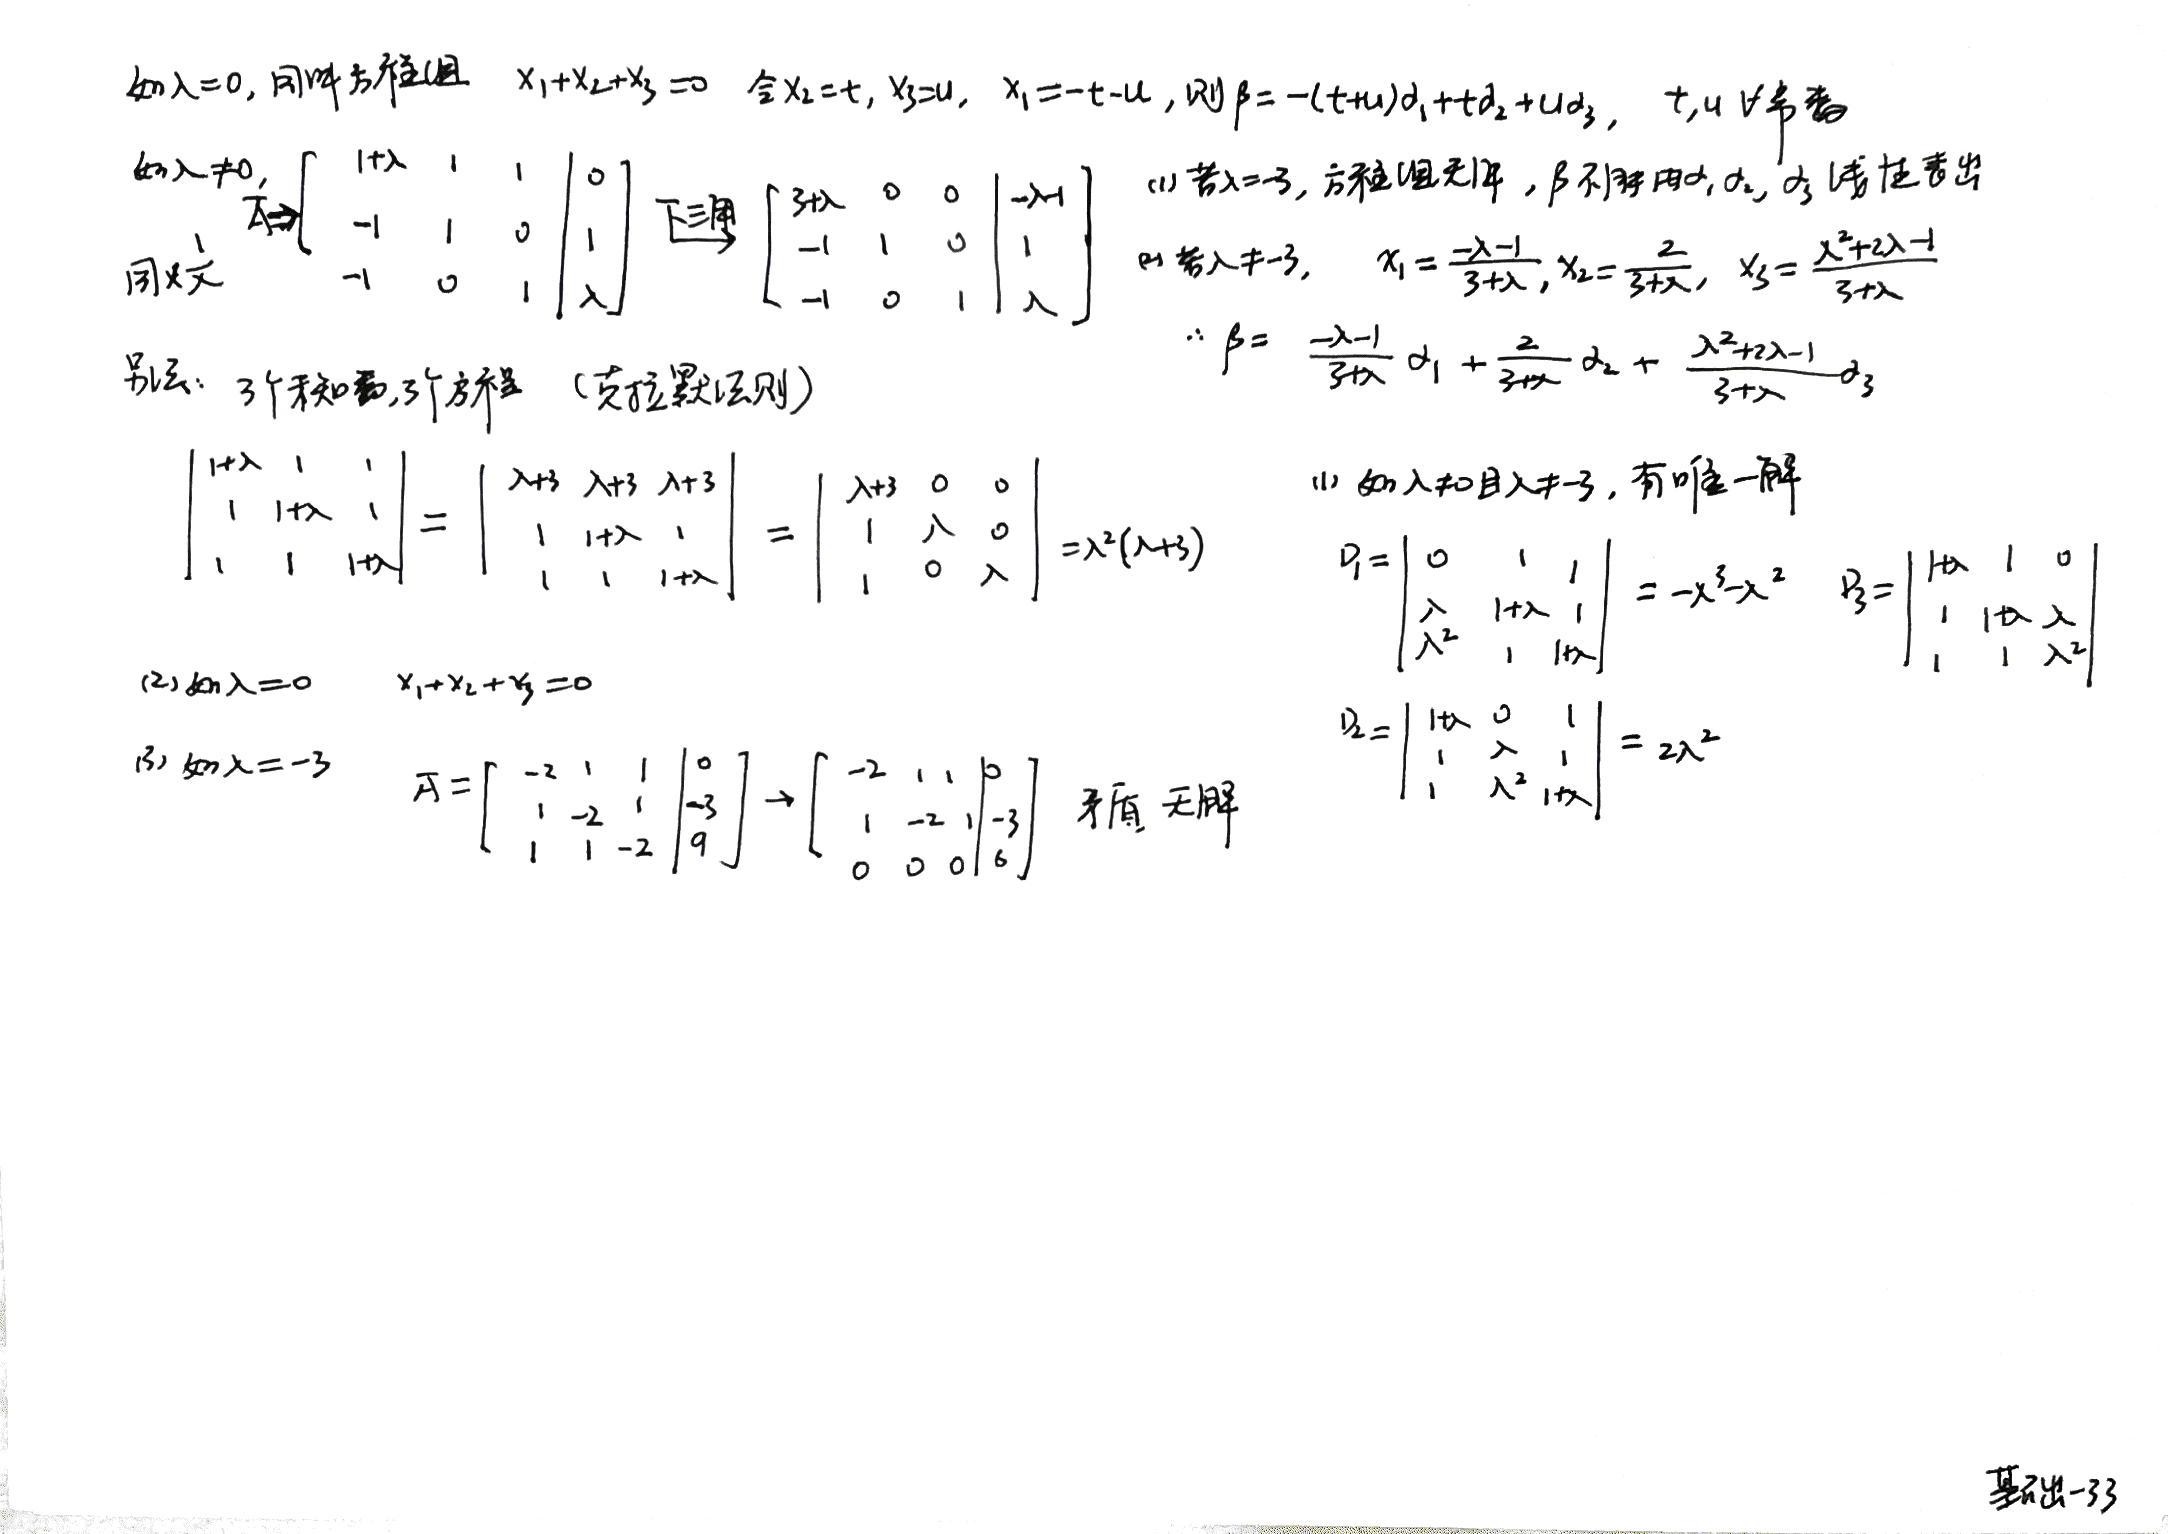 如λ=0, 同解方程组 x₁+x₂+x₃=0 令x₂=t, x₃=u, x₁=-t-u, 则β=-(t+u)α₁+tα₂+uα₃, t,u ∀常数
如λ≠0, Ā→[1+λ 1 1 | 0; -1 1 0 | 1; -1 0 1 | λ] 下三角→ [3+λ 0 0 | -λ-1; -1 1 0 | 1; -1 0 1 | λ]
同×1/λ
(1) 若λ=-3, 方程组无解, β不能用α₁α₂, α₃线性表出
(2) 若λ≠-3, x₁=(-λ-1)/(3+λ), x₂=2/(3+λ), x₃=(λ²+2λ-1)/(3+λ)
∴ β= (-λ-1)/(3+λ) α₁ + 2/(3+λ) α₂ + (λ²+2λ-1)/(3+λ) α₃
另法: 3个未知数,3个方程 (克拉默法则)
|1+λ 1 1; 1 1+λ 1; 1 1 1+λ| = |λ+3 λ+3 λ+3; 1 1+λ 1; 1 1 1+λ| = |λ+3 0 0; 1 λ 0; 1 0 λ| =λ²(λ+3)
(1) 如λ≠0且λ≠-3, 有唯一解
D₁=|0 1 1; λ 1+λ 1; λ² 1 1+λ| = -λ³-λ² D₃=|1+λ 1 0; 1 1+λ λ; 1 1 λ²|
D₂=|1+λ 0 1; 1 λ 1; 1 λ² 1+λ| = 2λ²
(2) 如λ=0 x₁+x₂+x₃=0
(3) 如λ=-3 Ā=[-2 1 1 | 0; 1 -2 1 | -3; 1 1 -2 | 9] → [-2 1 1 | 0; 1 -2 1 | -3; 0 0 0 | 6] 矛盾 无解
基础-33